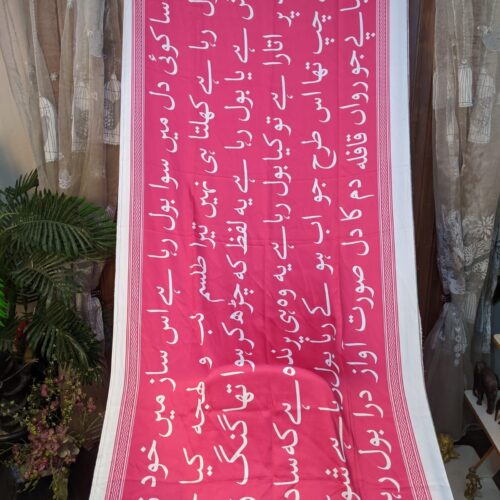 سا کوئی دل میں سوا بول رہا ہے اس ساز میں خود
رہا ہے کھلتا ہی نہیں تیرا طلسم لب و لہجہ کیا
ہے یا بول رہا ہے یہ لفظ کہ چڑھ کر ہوا تھا گنگ
پر اتارا ہے تو کیا بول رہا ہے یہ وہ ہی پرندہ ہے کہ
چپ تھا اس طرح جو اب ہو کے رہا بول رہا ہے
ہے جو رواں قافلہ دم کا دل صورت آواز درا بول